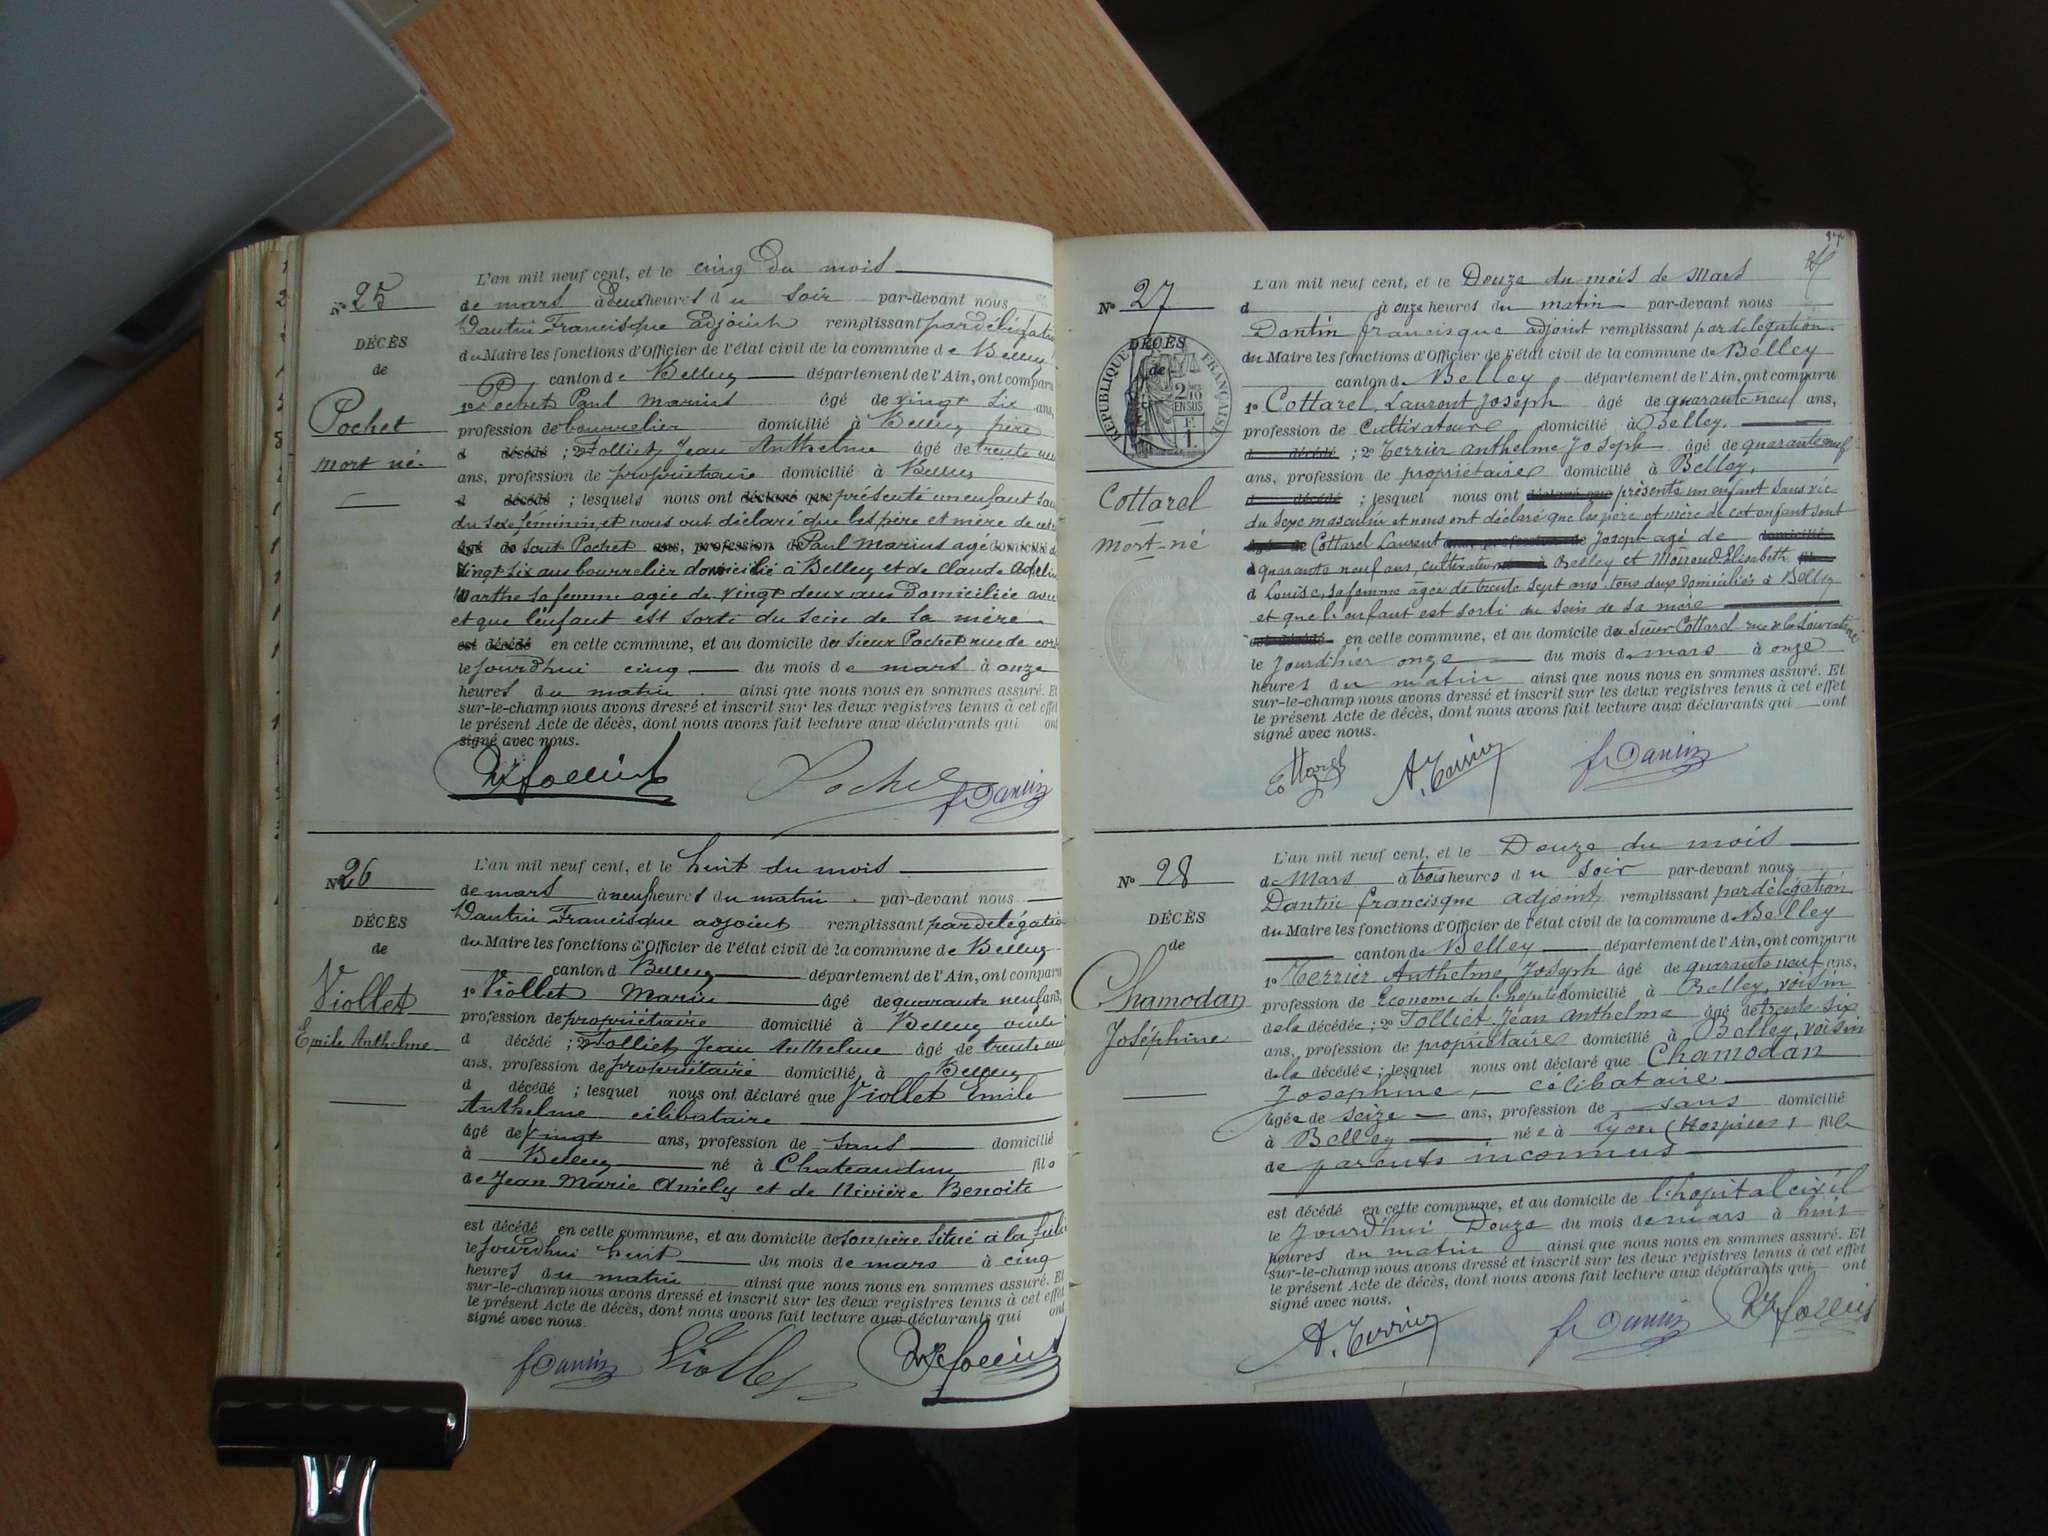 N° 25
DÉCÈS
de
Pochet
mort né.
L'an mil neuf cent, et le cinq du mois
de mars à deux heures du soir par-devant nous
Dantin Francisque adjoint remplissant par délégation
du Maire les fonctions d'Officier de l'état civil de la commune de Belley
canton de Belley département de l'Ain, ont comparu
1° Pochet Paul Marius âgé de vingt six ans,
profession de bourrelier domicilié à Belley père
d décédé ; 2° Folliet Jean Anthelme âgé de trente
ans, profession de propriétaire domicilié à Belley
d décédé ; lesquels nous ont déclaré que présenté un enfant sans
du sexe féminin, et nous ont déclaré que les père et mère de cet
âgé de sont Pochet ans, profession de Paul Marius agé domicilié de
vingt six ans bourrelier domicilié à Belley et de Claude
Marthe sa femme agée de vingt deux ans domiciliée avec
et que l'enfant est sorti du sein de sa mère
est décédé en cette commune, et au domicile du sieur Pochet rue de
le jourd'hui cinq du mois de mars à onze
heures du matin ainsi que nous nous en sommes assuré. Et
sur-le-champ nous avons dressé et inscrit sur les deux registres tenus à cet effet
le présent Acte de décès, dont nous avons fait lecture aux déclarants qui ont
signé avec nous.
Folliet Pochet f Dantin
N° 26
DÉCÈS
de
Viollet
Emile Anthelme
L'an mil neuf cent, et le huit du mois
de mars à neuf heures du matin par-devant nous
Dantin Francisque adjoint remplissant par délégation
du Maire les fonctions d'Officier de l'état civil de la commune de Belley
canton d Belley département de l'Ain, ont comparu
1° Viollet Marie âgé de quarante neuf ans,
profession de propriétaire domicilié à Belley oncle
d décédé ; 2° Folliet Jean Anthelme âgé de trente
ans, profession de propriétaire domicilié à Belley
d décédé ; lesquel nous ont déclaré que Viollet Emile
Anthelme célibataire
âgé de vingt ans, profession de sans domicilié
à Belley né à Chateaudun fils
de Jean Marie Amély et de Rivière Benoite
est décédé en cette commune, et au domicile de son père situé à la
le jourd'hui huit du mois de mars à cinq
heures du matin ainsi que nous nous en sommes assuré. Et
sur-le-champ nous avons dressé et inscrit sur les deux registres tenus à cet effet
le présent Acte de décès, dont nous avons fait lecture aux déclarants qui ont
signé avec nous.
f Dantin Viollet Folliet
N° 27
DÉCÈS
de
RÉPUBLIQUE FRANÇAISE
2/10
EN SUS
1 F.
Cottarel
Mort-né
L'an mil neuf cent, et le Douze du mois de Mars
d à onze heures du matin par-devant nous
Dantin francisque adjoint remplissant par délégation
du Maire les fonctions d'Officier de l'état civil de la commune de Belley
canton de Belley département de l'Ain, ont comparu
1° Cottarel Laurent Joseph âgé de quarante neuf ans,
profession de Cultivateur domicilié à Belley.
d décédé ; 2° Terrier Anthelme Joseph âgé de quarante neuf
ans, profession de propriétaire domicilié à Belley,
d décédé ; lesquel nous ont déclaré que présenté un enfant sans vie
du sexe masculin et nous ont déclaré que les père et mère de cet enfant sont
âgé de Cottarel Laurent ans, profession de Joseph agé de domicilié
à quarante neuf ans, cultivateur à Belley et Elisabeth
d Louise, sa femme agée de trente sept ans, tous deux domiciliés à Belley
et que l'enfant est sorti du sein de sa mère
est décédé en cette commune, et au domicile du Sieur Cottarel rue de la
le jourd'hier onze du mois de mars à onze
heures du matin ainsi que nous nous en sommes assuré. Et
sur-le-champ nous avons dressé et inscrit sur les deux registres tenus à cet effet
le présent Acte de décès, dont nous avons fait lecture aux déclarants qui ont
signé avec nous.
Cottarel A. Terrier f Dantin
N° 28
DÉCÈS
de
Chamodan
Joséphine
L'an mil neuf cent, et le Douze du mois
d Mars à trois heures du soir par-devant nous
Dantin francisque adjoint remplissant par délégation
du Maire les fonctions d'Officier de l'état civil de la commune de Belley
canton de Belley département de l'Ain, ont comparu
1° Terrier Anthelme Joseph âgé de quarante neuf ans,
profession de Econome de l'hopital domicilié à Belley, voisin
de la décédée ; 2° Folliet Jean Anthelme âgé de trente six
ans, profession de propriétaire domicilié à Belley, voisin
de la décédée ; lesquel nous ont déclaré que Chamodan
Josephine, célibataire
âgée de seize ans, profession de sans domicilié
à Belley née à Lyon (Hospices) fille
de parents inconnus
est décédé en cette commune, et au domicile de l'hopital civil
le jourd'hui Douze du mois de mars à huit
heures du matin ainsi que nous nous en sommes assuré. Et
sur-le-champ nous avons dressé et inscrit sur les deux registres tenus à cet effet
le présent Acte de décès, dont nous avons fait lecture aux déclarants qui ont
signé avec nous.
A. Terrier f Dantin Folliet